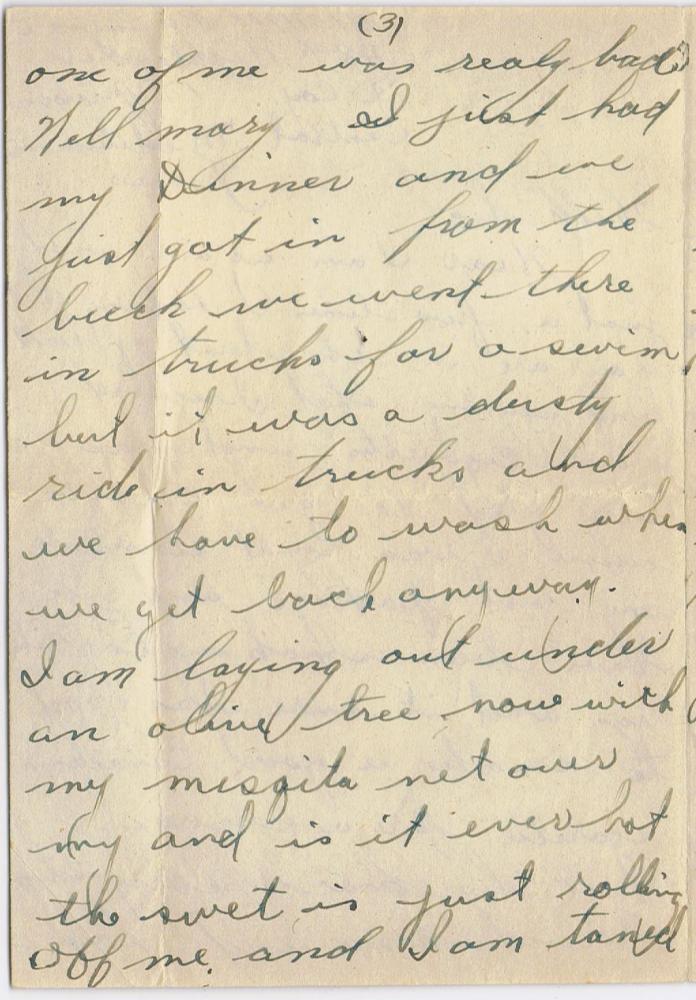 (3)
one of me was realy bad
Well mary I just had
my Dinner and we
just got in from the
beech we went there
in trucks for a swim
but it was a dusty
ride in trucks and
we have to wash when
we get back anyway.
I am laying out under
an olive tree now with
my misqita net over
my and is it ever hot
the swet is just rolling
off me and I am taned